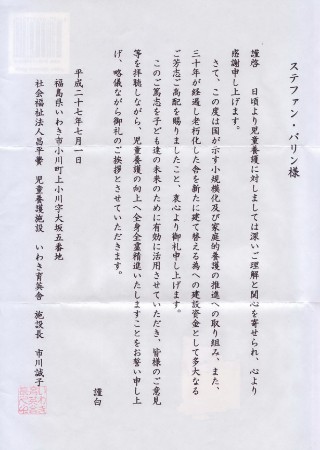 ステファン・バリン様
謹啓　日頃より児童養護に対しましては深いご理解と関心を寄せられ、心より
感謝申し上げます。
さて、この度は国が示す小規模化及び家庭的養護の推進への取り組み、また、
三十年が経過し老朽化した舎を新たに建て替える為への建設資金として多大なる
ご芳志ご高配を賜りましたこと、衷心より御礼申し上げます。
このご篤志を子ども達の未来のために有効に活用させていただき、皆様のご意見
等を拝聴しながら、児童養護の向上へ全身全霊精進いたしますことをお誓い申し上
げ、略儀ながら御礼のご挨拶とさせていただきます。
謹白
平成二十七年七月一日
福島県いわき市小川町上小川字大坂五番地
社会福祉法人昌平黌　児童養護施設　いわき育英舎　施設長　市川誠子